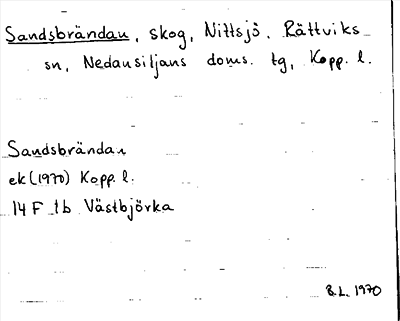 Sandsbrändan, skog, Nittsjö, Rättviks
sn, Nedansiljans doms. tg, Kopp. l.
Sandsbrändan
ek (1970) Kopp. l.
14 F 1b Västbjörka
B.L. 1970